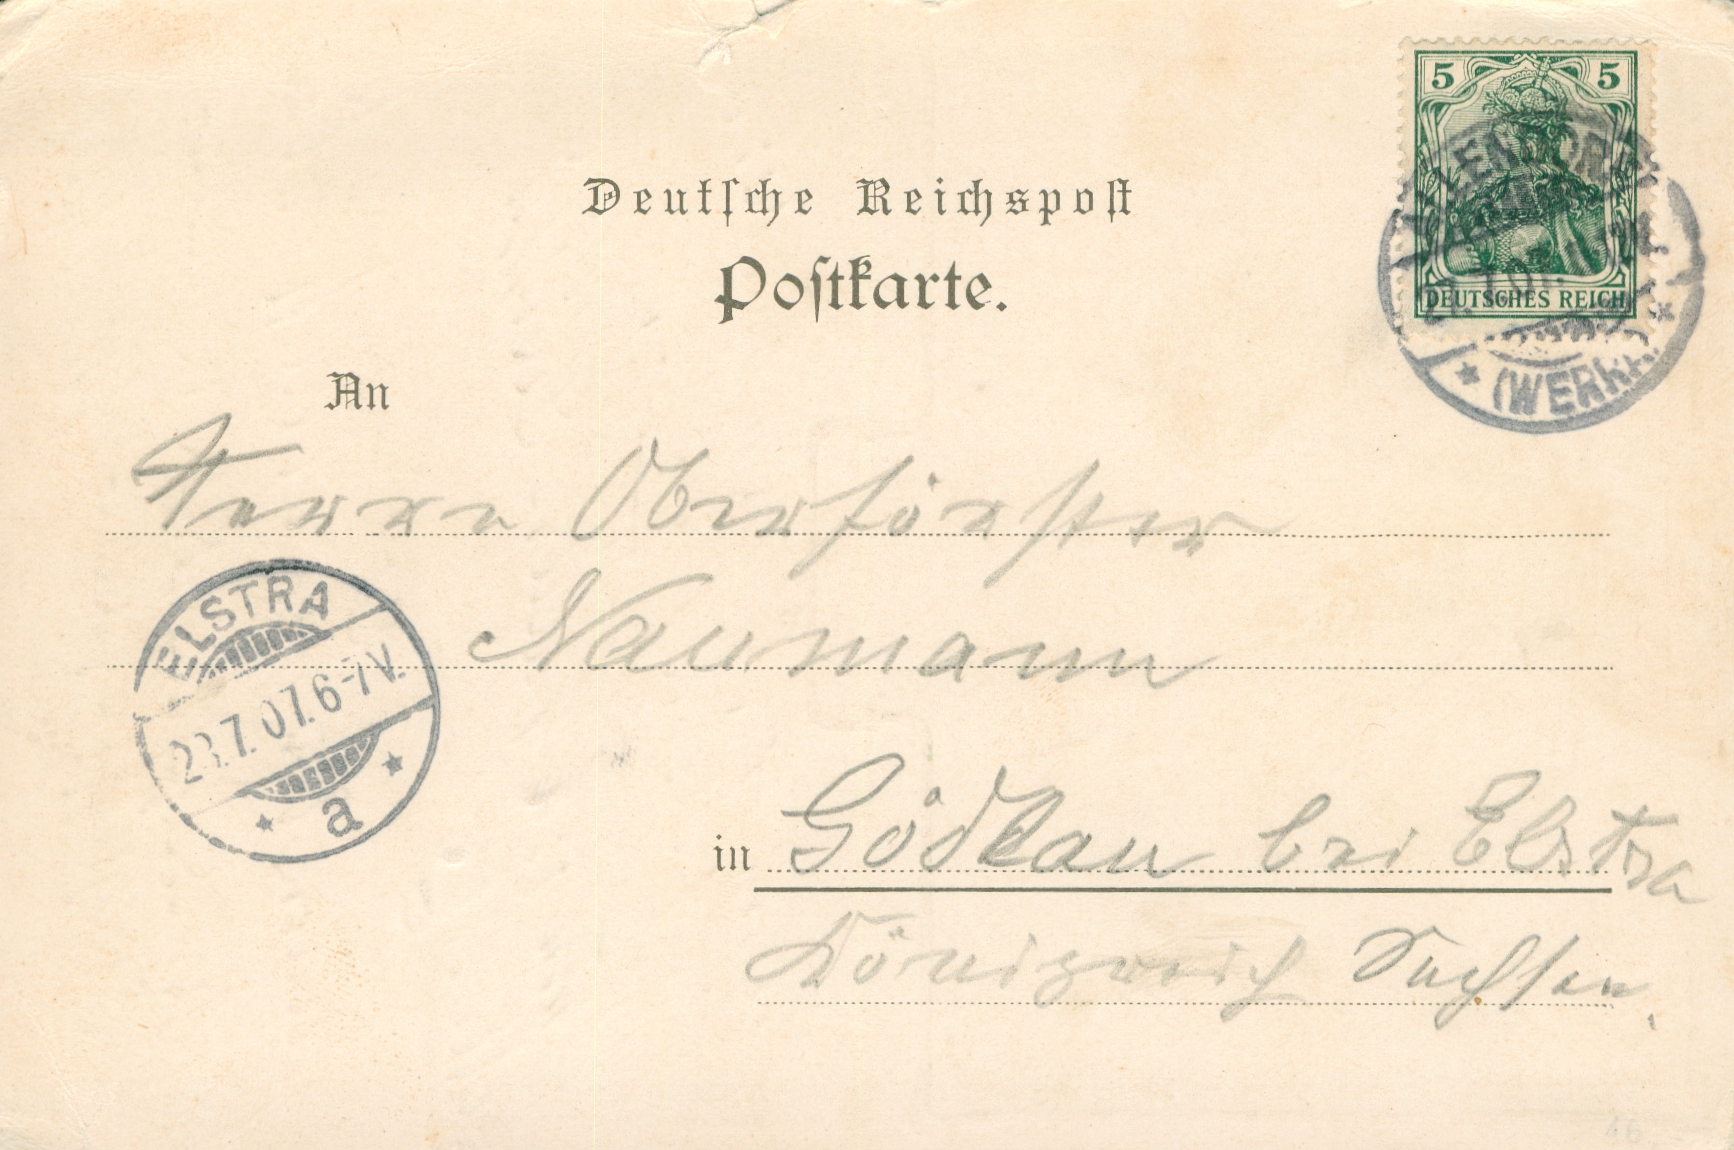 Deutsche Reichspost
Postkarte.
5 5
DEUTSCHES REICH
(WERRA)
An
Herrn Oberförster
Naumann
ELSTRA
23.7.07. 6-7 V.
a
in Gödlau bei Elstra
Königreich Sachsen.